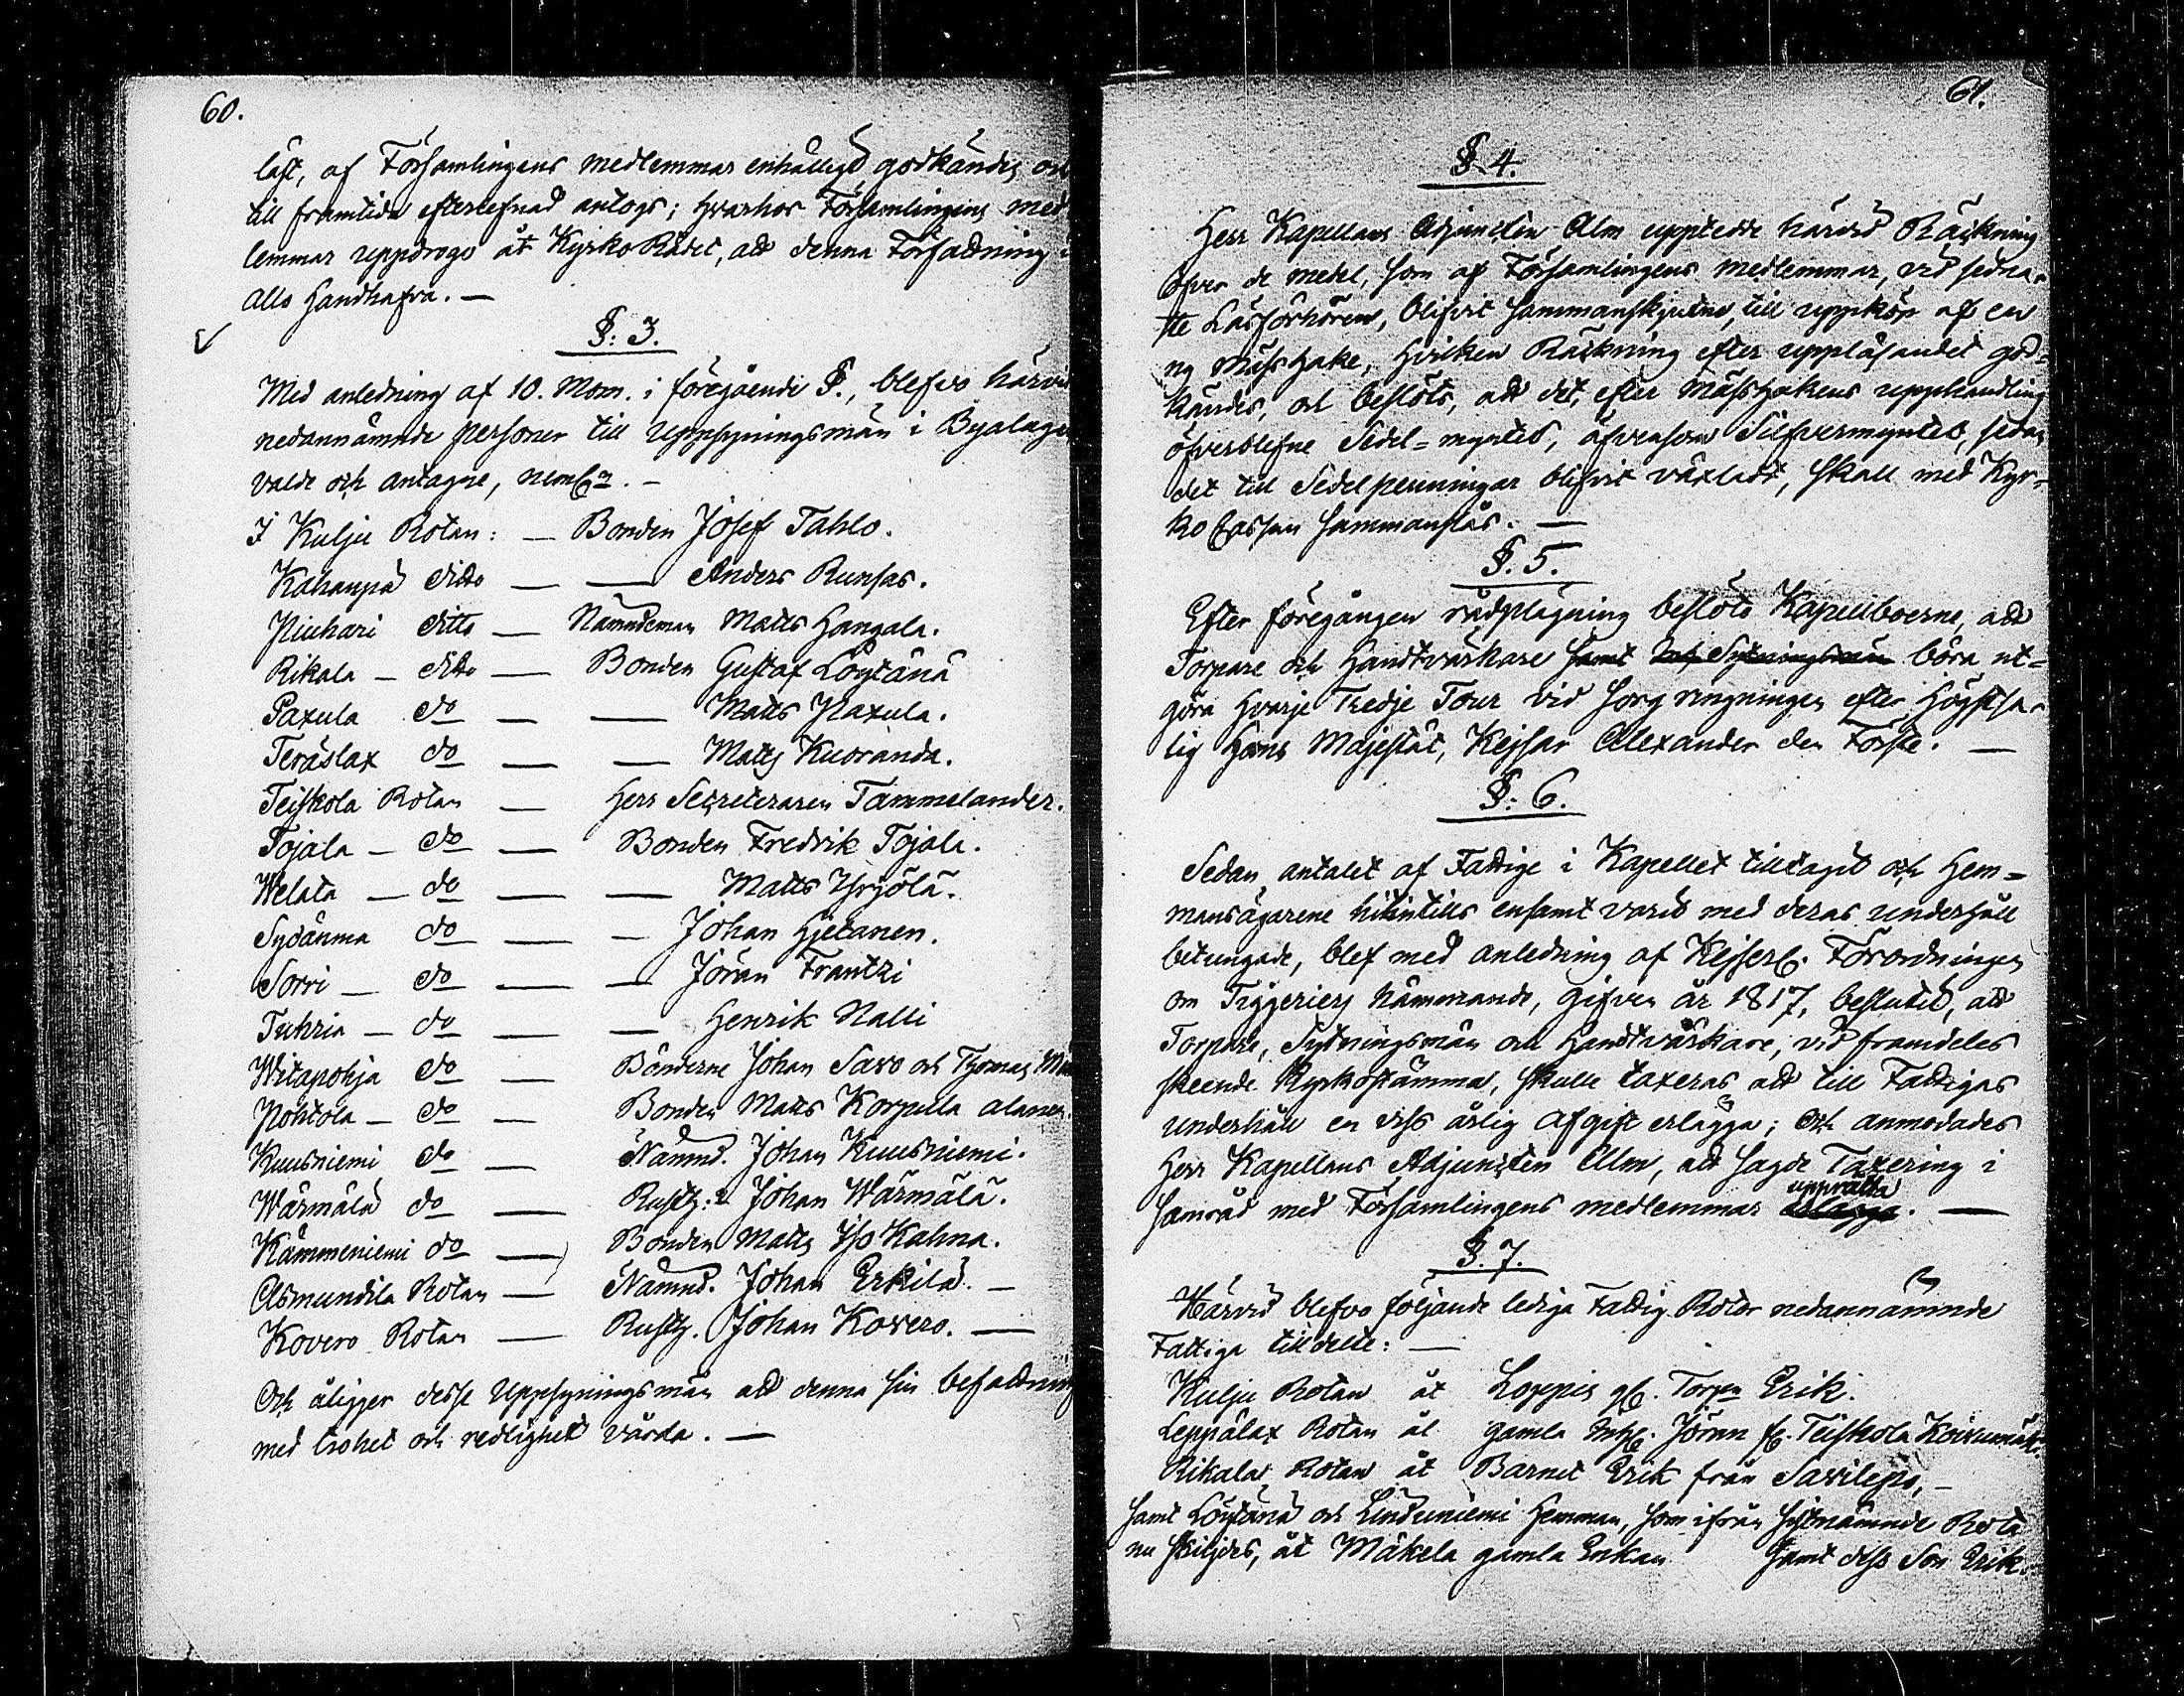 60.
läst, af Församlingens medlemmar enhälligt godkändes och
till framtida efterlefnad antogs; hvarhos Församlingens med
lemmar uppdrogo åt Kyrko Rådet, att denna Författning i
allo handhafva. —
§. 3.
Med anledning af 10. Mom. i föregående §., blefvo härvid
nedannämnde personer till Uppsyningsmän i Byalagen
valde och antagne, neml:n. —
I Kulju Rotan: — Bonden Josef Tahlo.
Kahanpä ditto — — Anders Runsas.
Niuhari ditto — Nämndeman Matts Hangala.
Rikala — ditto — Bonden Gustaf Löytänä
Paxula do — — Matts Paxula.
Teräslax do — — Matts Kuoranda.
Teiskola Rotan — Herr Secreteraren Tammelander.
Tojala — do — Bonden Fredrik Tojala.
Welata — do — — Matts Yrjölä.
Sydänma do — — Johan Hjetanen.
Sorri — do — — Jöran Frantzi
Tuhria — do — — Henrik Nalli
Witapohja do — Bönderne Johan Savo och Thomas
Pohtola — do — Bonden Matts Korpula alanen.
Kuusniemi do — Nämnd. Johan Kuusniemi.
Wärmälä do — Rusth: Johan Wärmälä.
Kämmeniemi do — Bonden Matts Iso Kahna.
Asmundila Rotan — Nämnd. Johan Erkilä. —
Kovero Rotan — Rusth. Johan Kovero. —
Och åligger desse Uppsyningsmän att denna sin befattning
med trohet och redlighet vårda. —
61.
§ 4.
Herr Kapellans Adjuncten Alm uppteedde härvid Räckning
öfver de medel, som af Församlingens medlemmar, vid sedna-
ste Läsförhören, blifvit sammanskjutne, till uppköp af en
ny Mässhake, hvilken Räckning efter uppläsandet god=
kändes, och beslöts, att det, efter Mässhakens upphandling
öfverblefne Sedel=myntet, äfvensom Silfvermyntet, sedan
det till Sedelpenningar blifvit växladt, skall med Kyr=
ko Cassan sammanslås. —
§. 5.
Efter föregången rådplägning beslöto Kapellboerne, att
Torpare och Handtvärkare samt Sytningsmän böra ut=
göra hvarje Tredje Tour vid sorg ringningen efter Högstsa-
lig Hans Majestät, Kejsar Alexander den Förste. —
§. 6.
Sedan antalet af Fattige i Kapellet tilltagit och Hem=
mansägarene hitintills ensamt varit med deras underhåll
betungade, blef med anledning af Kejserl. Förordningen
om Tiggeriers hämmande, gifven år 1817, beslutit, att
Torpare, Sytningsmän och Handtvärkare, vid framdeles
skeende Kyrkostämma, skulle taxeras att till Fattigas
underhåll en viss årlig afgift erlägga; och anmodades
Herr Kapellans Adjuncten Alm, att sagde Taxering i
upprätta
samråd med Församlingens medlemmar erlägga. —
§. 7.
Härvid blefvo följande lediga Fattig Rotor nedannämnde
Fattiga tilldelte: —
Kulju Rotan åt Loppis gl. Torp:n Erik.
Leppälax Rotan åt gamla Inh. Jöran fr. Teiskola Koivumäki
Rikala Rotan åt Barnet Erik från Savilepo, —
samt Löytänä och Linduniemi Hemman, som ifrån sistnämnde Rota
nu skiljdes, åt Mäkela gamla Enkan samt dess Son Erik.